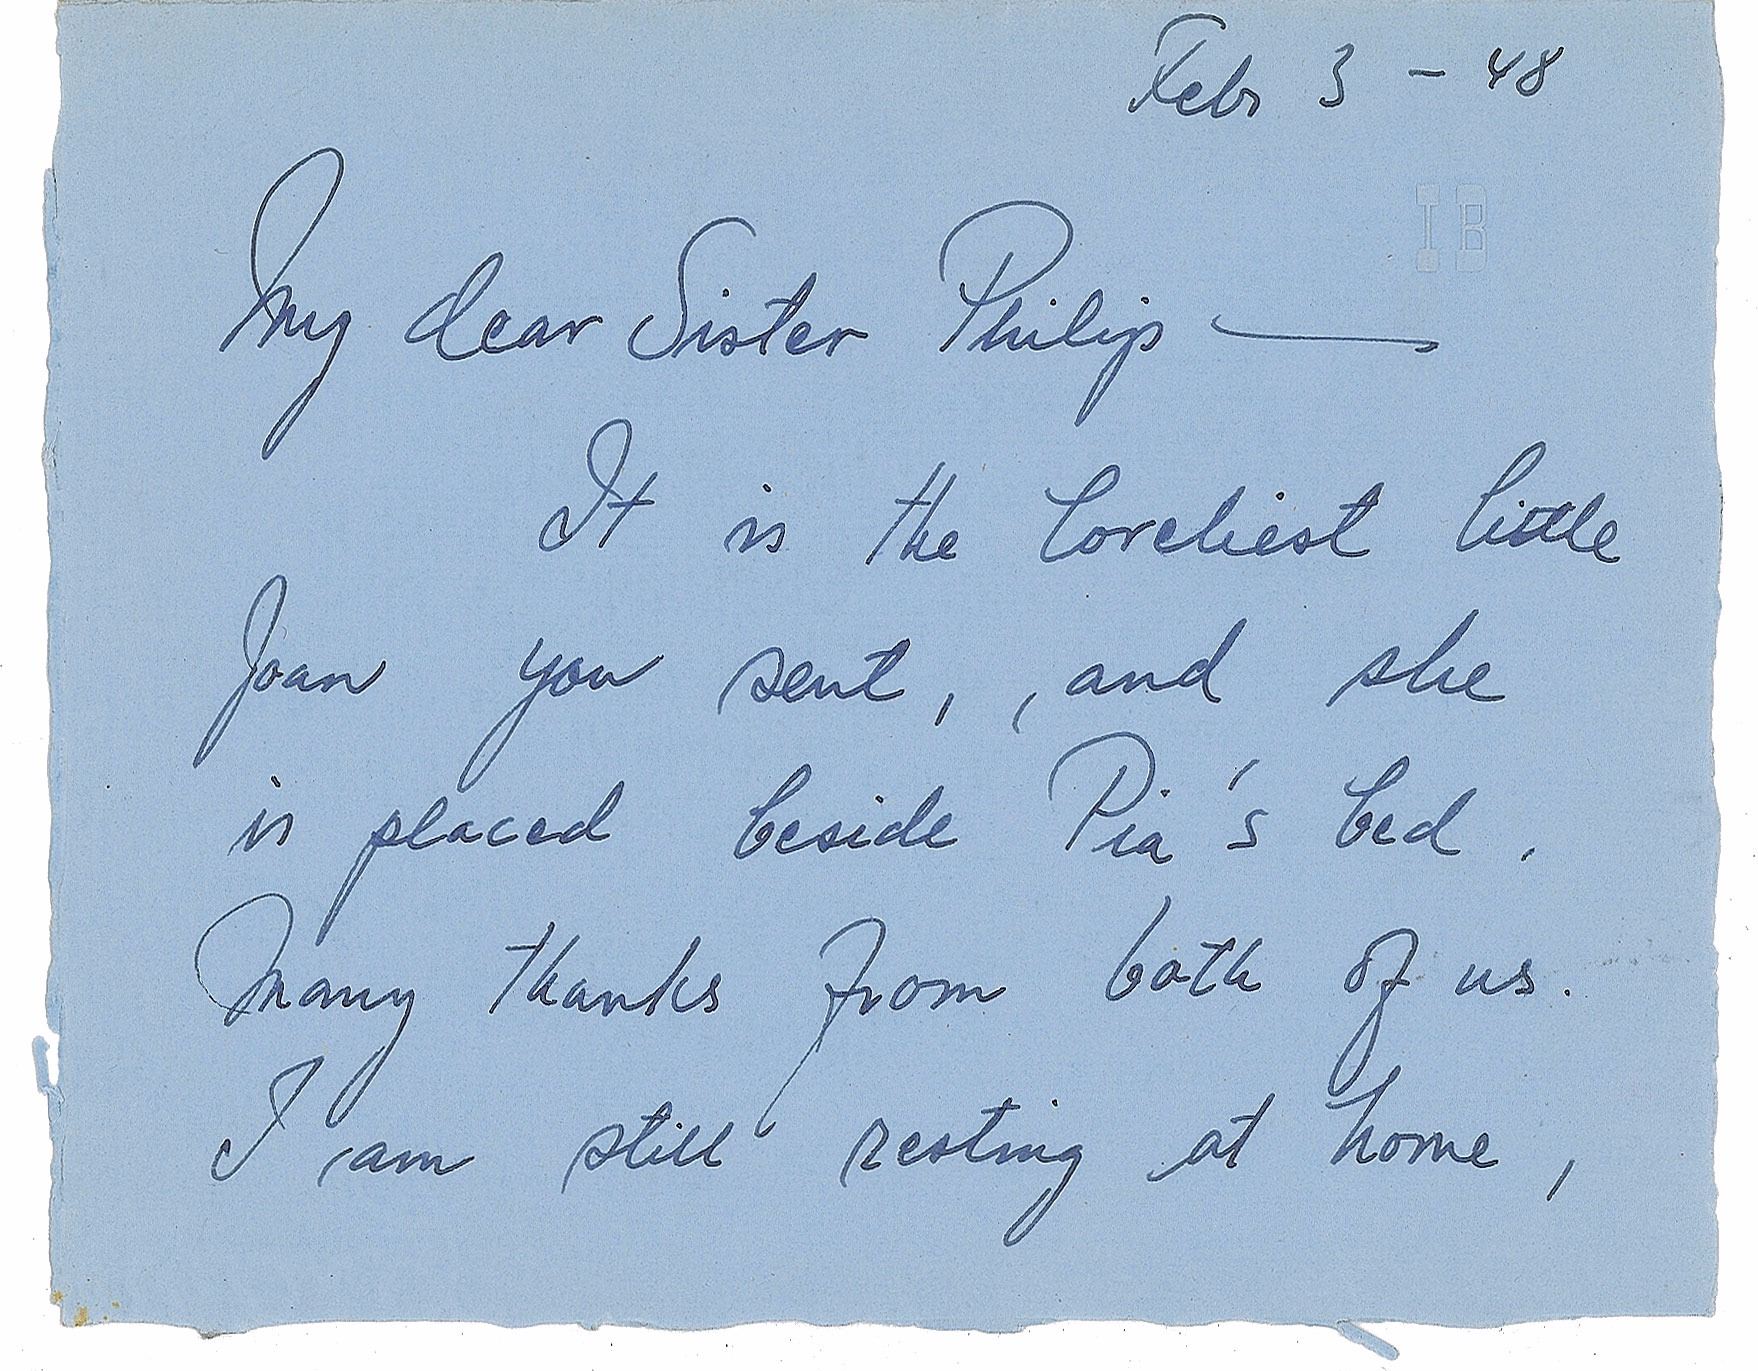 Febr 3 - 48
IB
My dear Sister Philip —
It is the loveliest little
Joan you sent, and she
is placed beside Pia's bed.
Many thanks from both of us.
I am still resting at home,